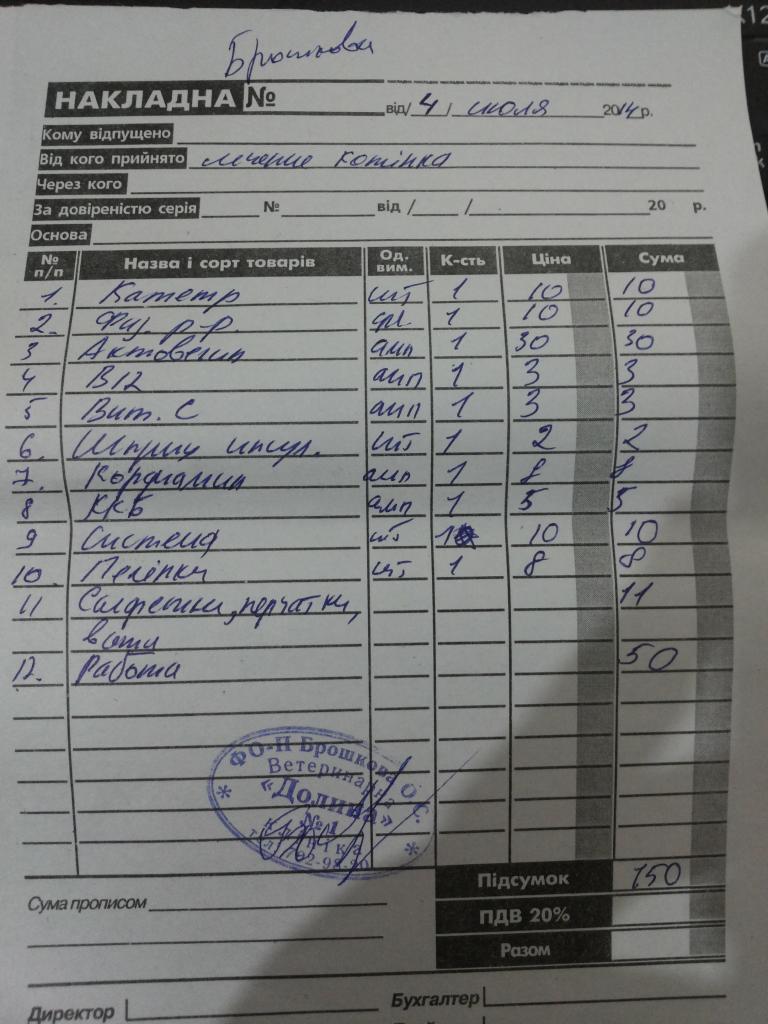 Брошкова
НАКЛАДНА № від/ 4 / июля 2014 р.
Кому відпущено
Від кого прийнято лечение котёнка
Через кого
За довіреністю серія № від / / 20 р.
Основа
№ п/п Назва і сорт товарів Од. вим. К-сть Ціна Сума
1. Катетр шт 1 10 10
2. Физ. р-р. фл 1 10 10
3 Актовегин амп 1 30 30
4 В12 амп 1 3 3
5 Вит. С амп 1 3 3
6. Шприц инсул. шт 1 2 2
7. Кордиамин амп 1 8 8
8 ККБ амп 1 5 5
9 Система шт 1 10 10
10. Пелёнки шт 1 8 8
11 Салфетки, перчатки, 11
вата
12. Работа 50
ФО-П Брошкова О.С.
Ветеринарна
«Долина»
№1
клініка
тел.
Підсумок 150
Сума прописом
ПДВ 20%
Разом
Директор
Бухгалтер